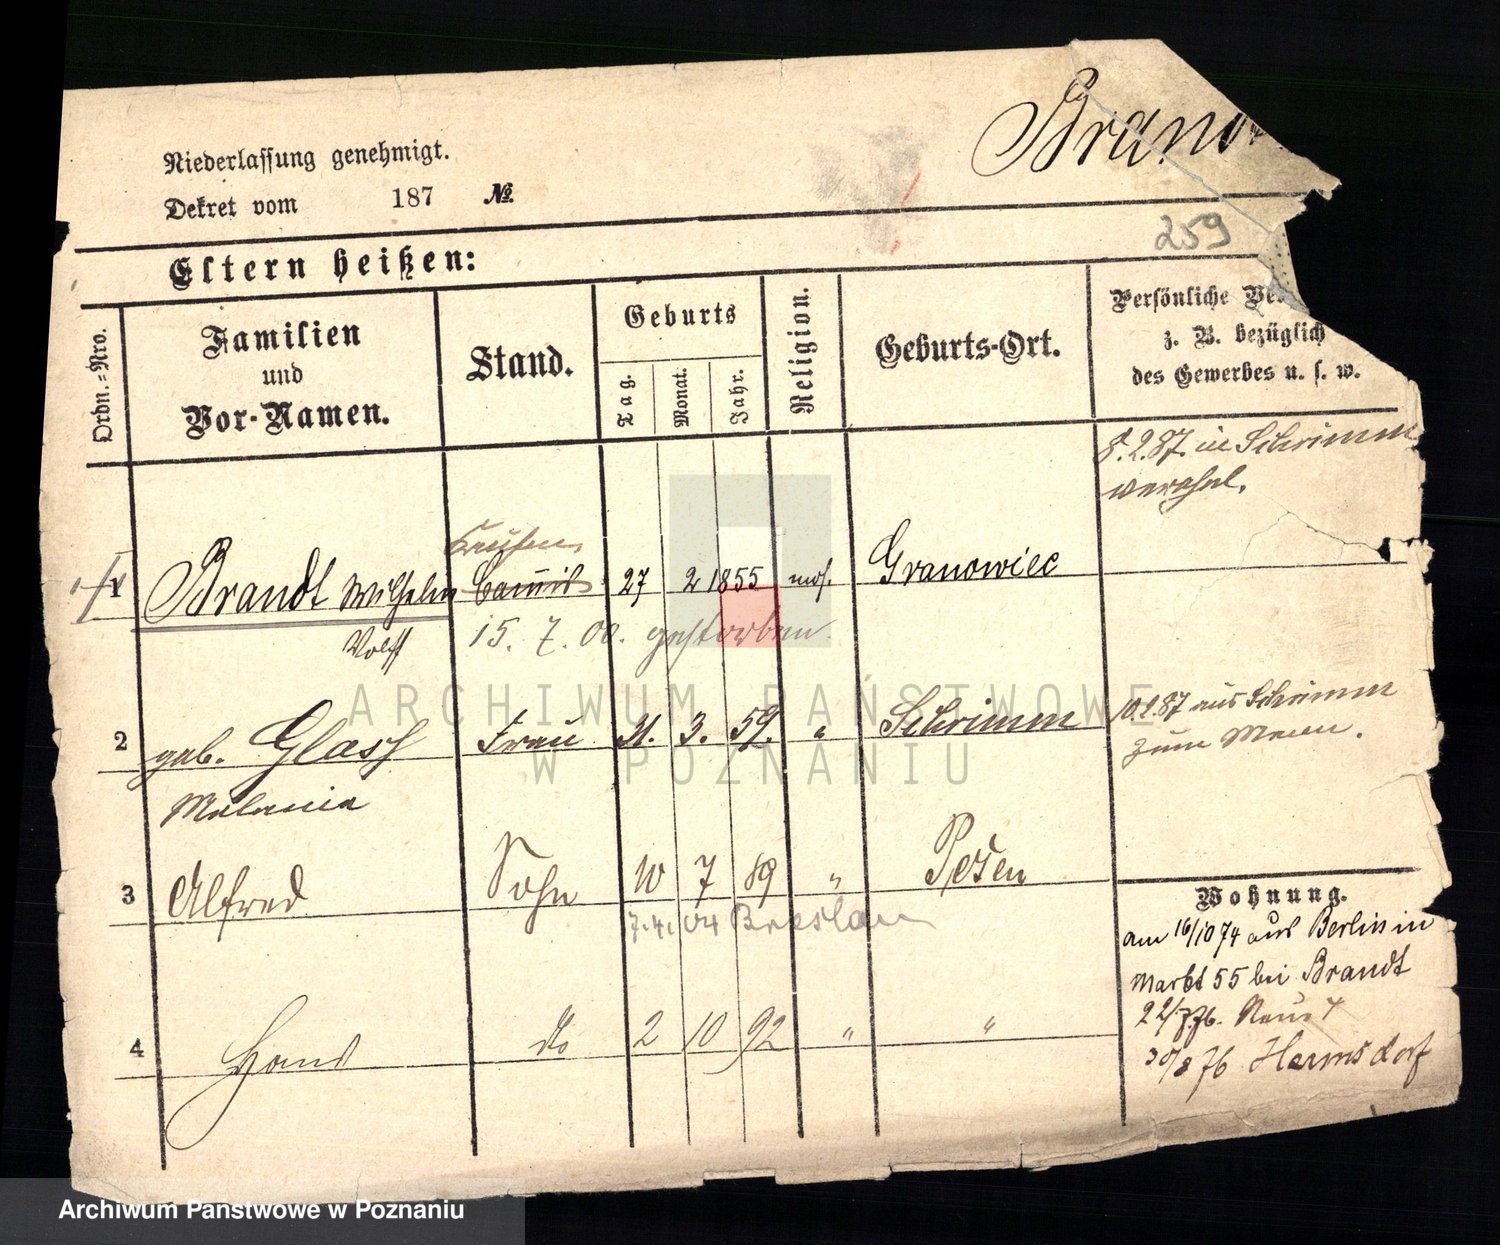 Niederlassung genehmigt.
Dekret vom 187 №
Brand
259
Eltern heißen:
Ordn.-Nro.
Familien
und
Vor-Namen.
Stand.
Geburts
Tag.
Monat.
Jahr.
Religion.
Geburts-Ort.
Persönliche
z. B. bezüglich
des Gewerbes u. s. w.
8.2.87. in Schrimm
verehel.
1 Brandt Wilhelm Commis 27 2 1855 mos. Granowiec
Wolff 15. 7. 00. gestorben
2 geb. Glass Frau 31. 3. 59. " Schrimm
Melanie
10.2.87 aus Schrimm
zum Mann.
3 Alfred Sohn 10 7 89 " Posen
7.4.04 Breslau
4 Hans do 2 10 92 " "
Wohnung.
am 16/10 74 aus Berlin in
Markt 55 bei Brandt
30/8 76 Hermsdorf
ARCHIWUM PAŃSTWOWE
W POZNANIU
Archiwum Państwowe w Poznaniu